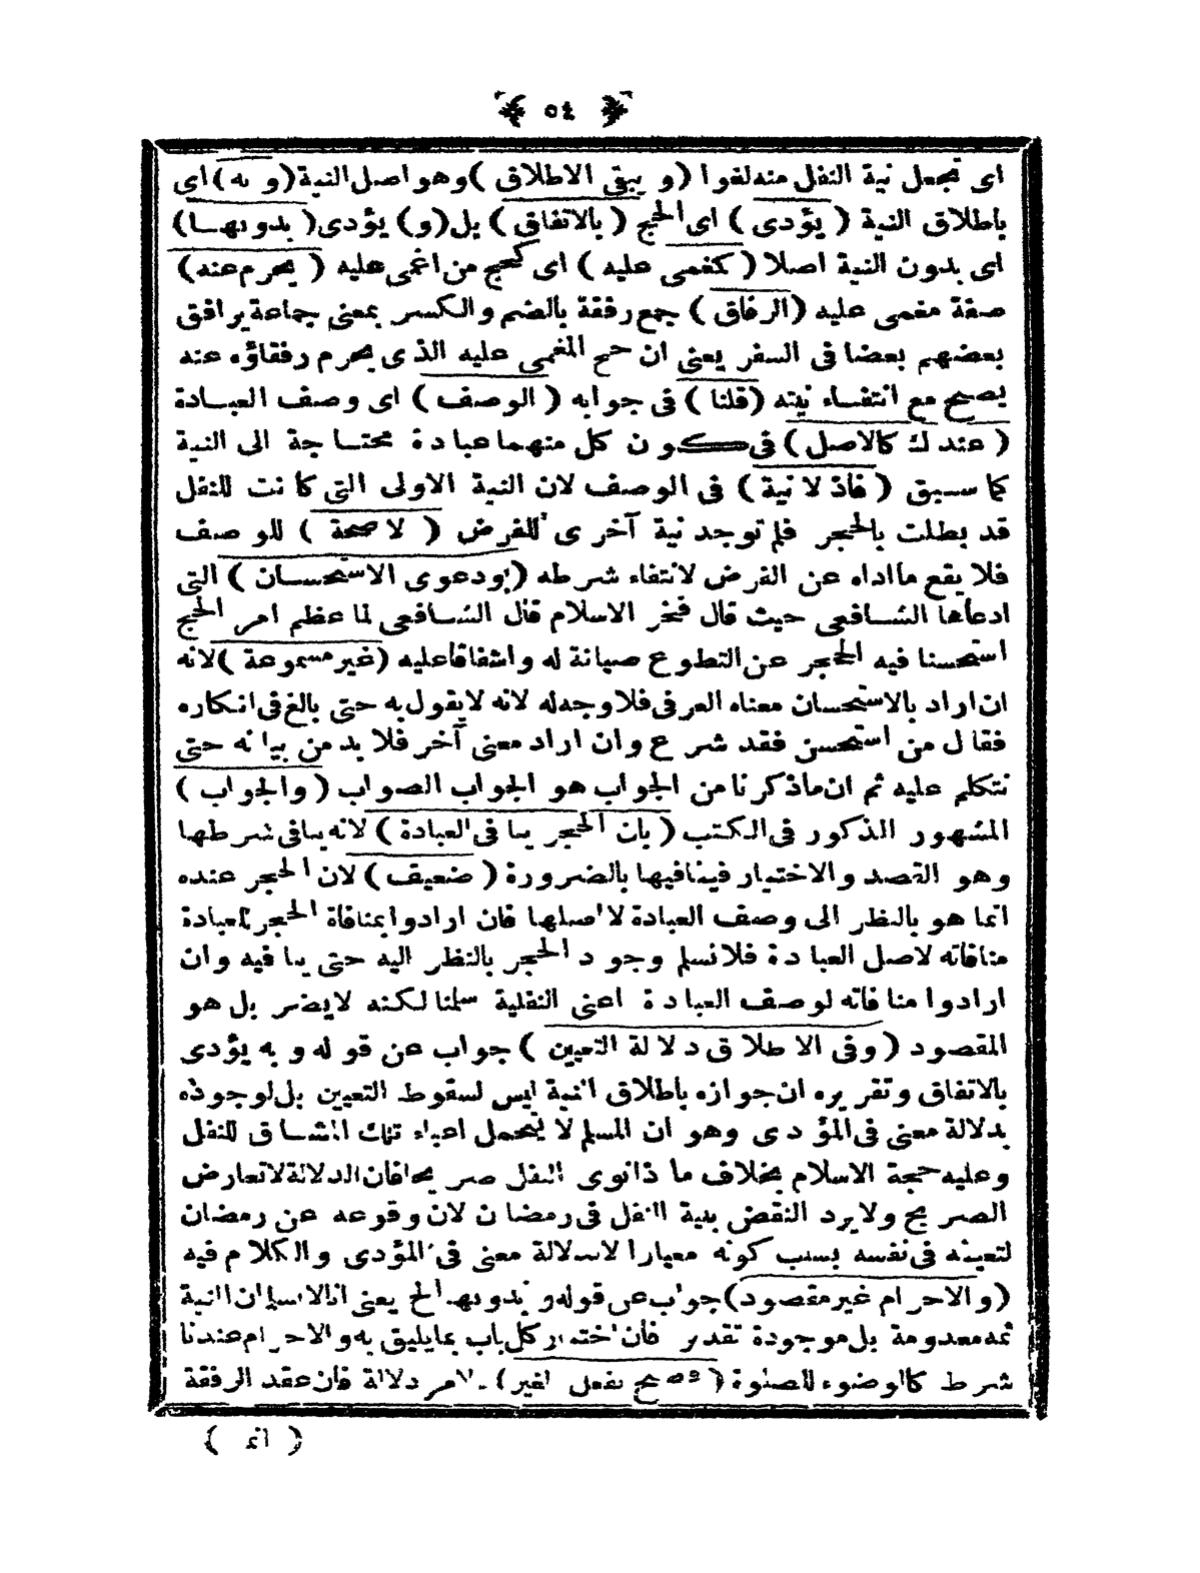 ٥٤
اى تجعل نية النفل منه لغوا (و يبقى الاطلاق) وهو اصل النية (و به) اى
باطلاق النية (يؤدى) اى الحج (بالاتفاق) بل (و) يؤدى (بدونها)
اى بدون النية اصلا (كمغمى عليه) اى كحج من اغمى عليه (يحرم عنه)
صفة مغمى عليه (الرفاق) جمع رفقة بالضم والكسر بمعنى جماعة يرافق
بعضهم بعضا فى السفر يعنى ان حج المغمى عليه الذى يحرم رفقاؤه عنه
يصح مع انتفاء نيته (قلنا) فى جوابه (الوصف) اى وصف العبادة
(عندك كالاصل) فى كون كل منهما عبادة محتاجة الى النية
كما سبق (فاذ لا نية) فى الوصف لان النية الاولى التى كانت للنفل
قد بطلت بالحجر فلم توجد نية آخرى للفرض (لا صحة) للوصف
فلا يقع ما اداه عن الفرض لانتفاء شرطه (ودعوى الاستحسان) التى
ادعاها الشافعى حيث قال فخر الاسلام قال الشافعى لما عظم امر الحج
استحسنا فيه الحجر عن التطوع صيانة له واشفاقا عليه (غير مسموعة) لانه
ان اراد بالاستحسان معناه العرفى فلا وجه له لانه لا يقول به حتى بالغ فى انكاره
فقال من استحسن فقد شرع وان اراد معنى آخر فلا بد من بيانه حتى
نتكلم عليه ثم ان ما ذكرنا من الجواب هو الجواب الصواب (والجواب)
المشهور المذكور فى الكتب (بان الحجر ينافى العبادة) لانه ينافى شرطها
وهو القصد والاختيار فينافيها بالضرورة (ضعيف) لان الحجر عنده
انما هو بالنظر الى وصف العبادة لا اصلها فان ارادوا بمنافاة الحجر للعبادة
منافاته لاصل العبادة فلا نسلم وجود الحجر بالنظر اليه حتى ينافيه وان
ارادوا منافاته لوصف العبادة اعنى النفلية سلمنا لكنه لا يضر بل هو
المقصود (وفى الاطلاق دلالة التعيين) جواب عن قوله وبه يؤدى
بالاتفاق وتقريره ان جوازه باطلاق النية ليس لسقوط التعيين بل لوجوده
بدلالة معنى فى المؤدى وهو ان المسلم لا يتحمل اعباء تلك المشاق للنفل
وعليه حجة الاسلام بخلاف ما اذا نوى النفل صريحا فان الدلالة لا تعارض
الصريح ولا يرد النقض بنية النفل فى رمضان لان وقوعه عن رمضان
لتعينه فى نفسه بسبب كونه معيارا لا بدلالة معنى فى المؤدى والكلام فيه
(والاحرام غير مقصود) جواب عن قوله و بدونها الخ يعنى انا لا نسلم ان النية
ثمه معدومة بل موجودة تقديرا فان اختيار كل باب بما يليق به والاحرام عندنا
شرط كالوضوء للصلوة (فصح بفعل الغير) بالامر دلالة فان عقد الرفقة
( انما )